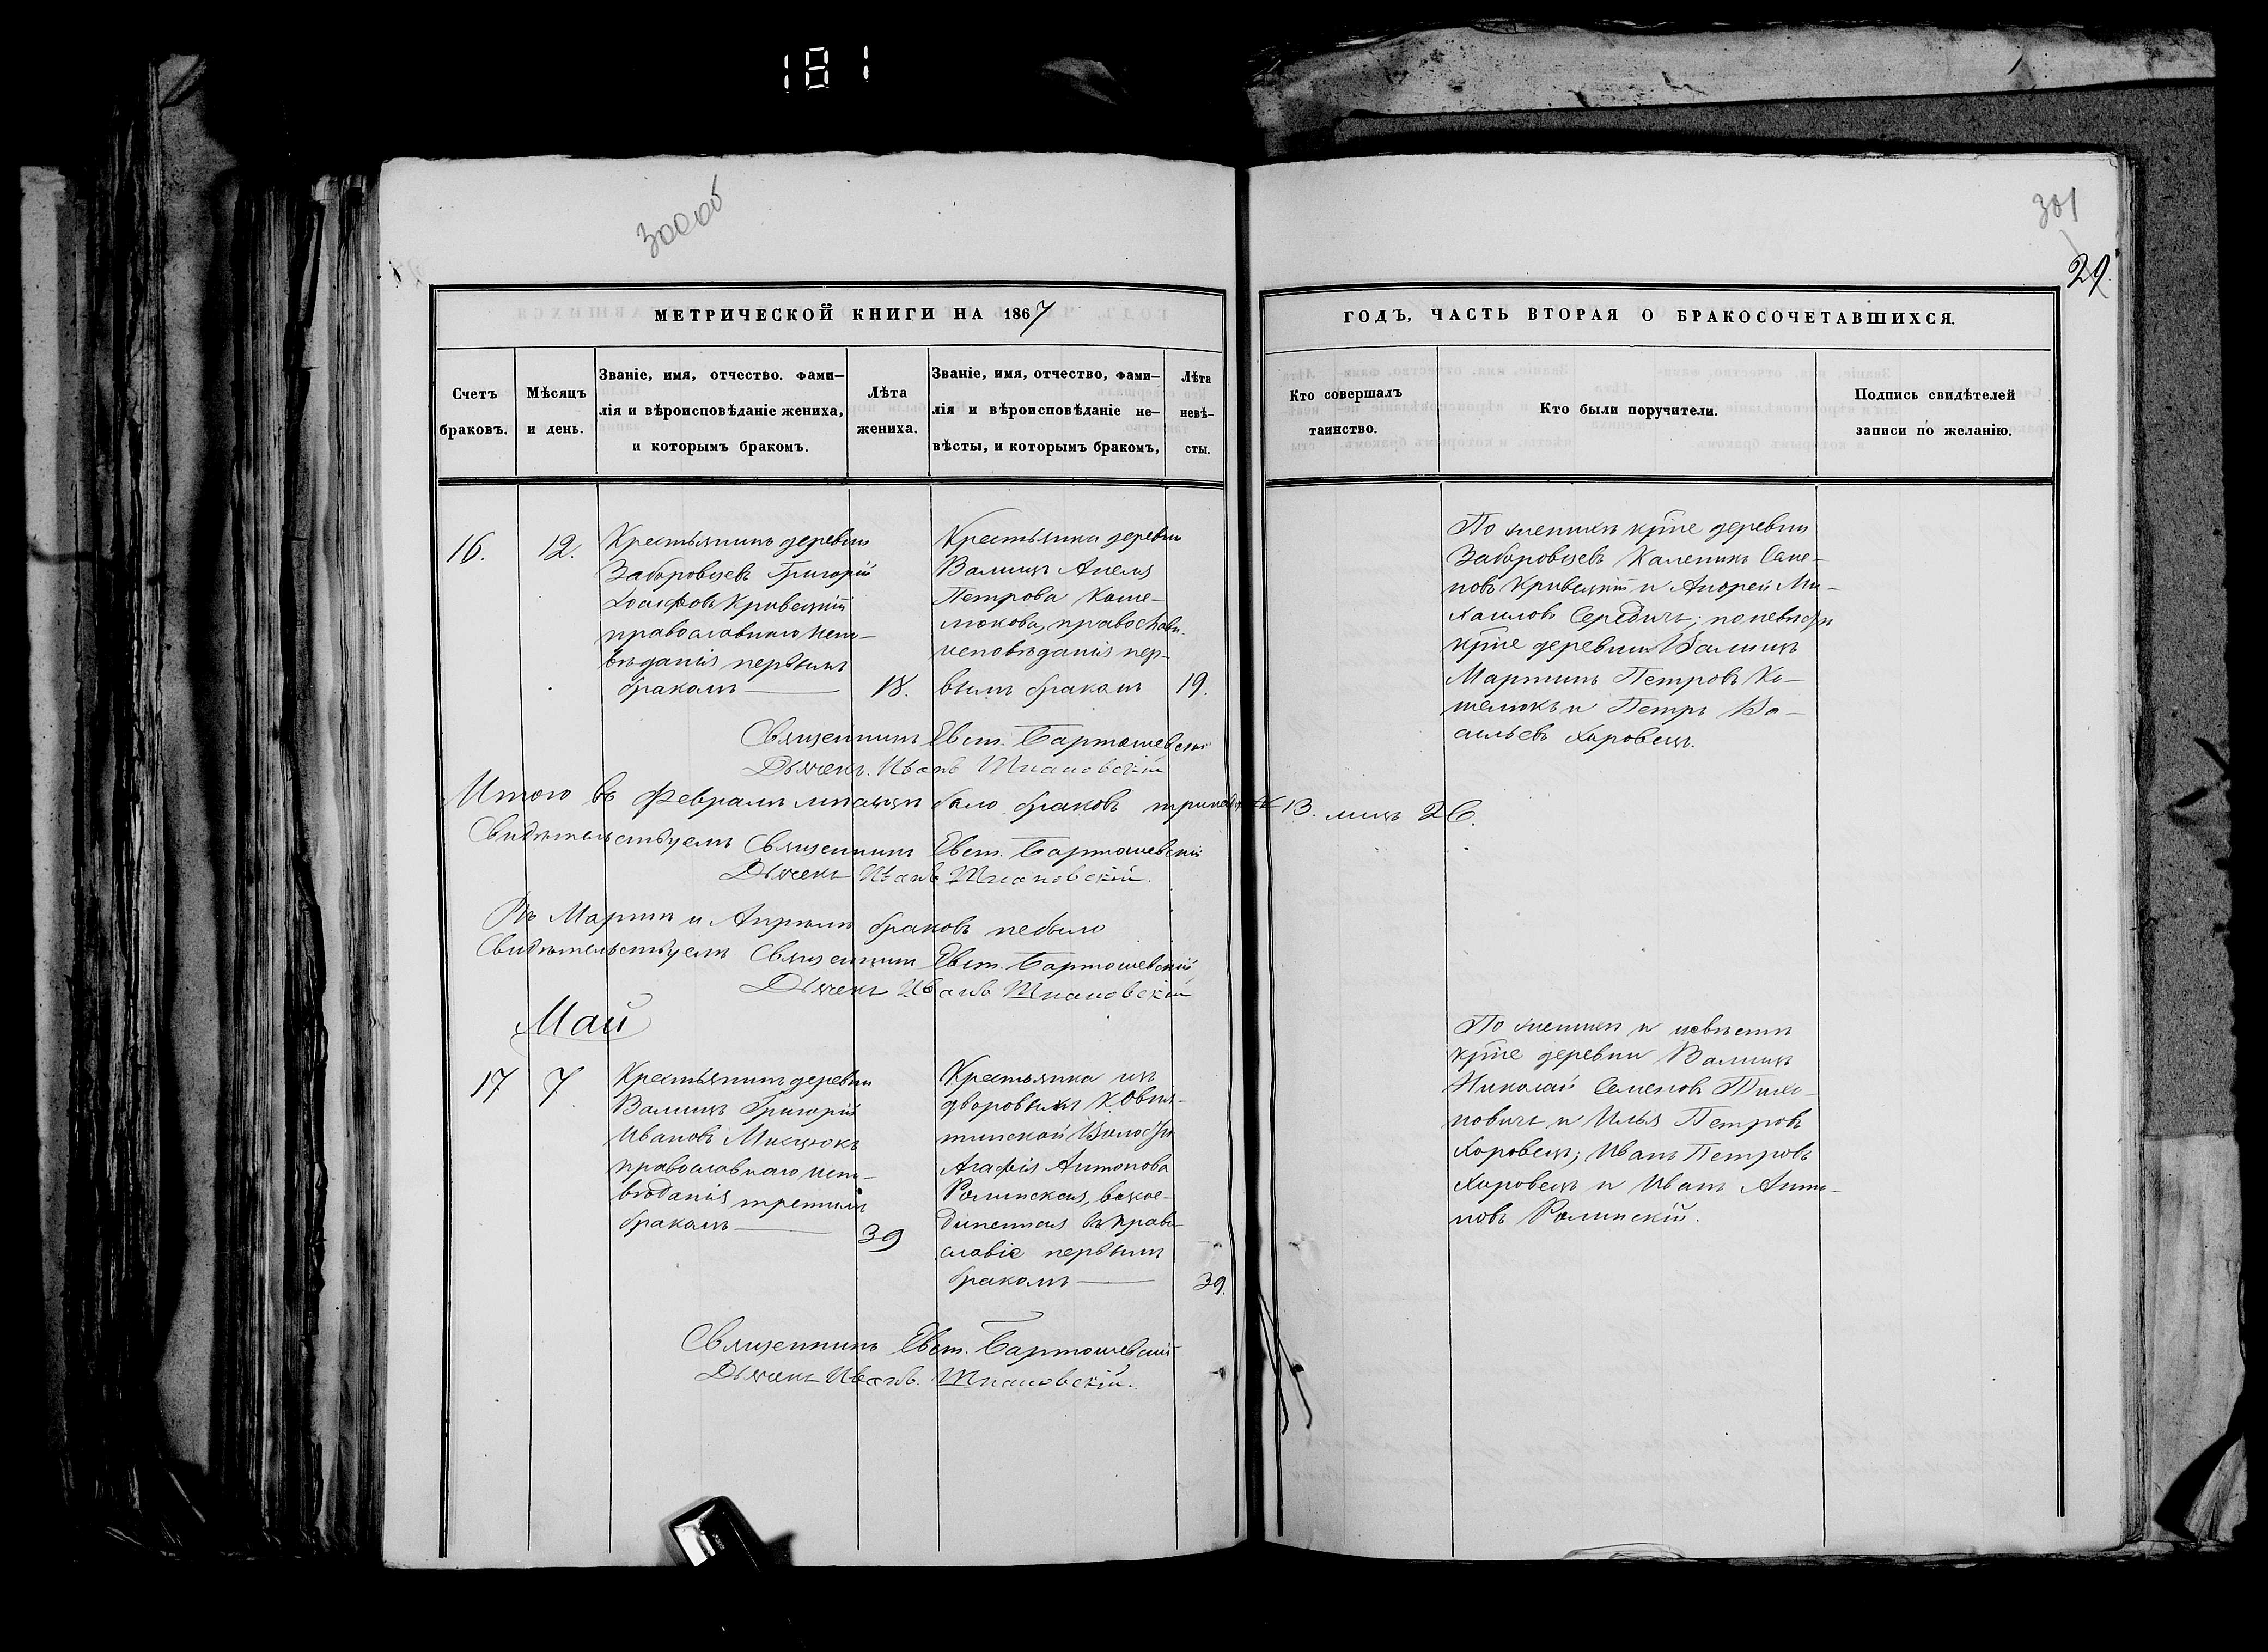 181
300об
301
29.
МЕТРИЧЕСКОЙ КНИГИ НА 1867
ГОДЪ, ЧАСТЬ ВТОРАЯ О БРАКОСОЧЕТАВШИХСЯ.
Счетъ браковъ.
Мѣсяцъ и день.
Званіе, имя, отчество. фами-
лія и вѣроисповѣданіе жениха,
и которымъ бракомъ.
Лѣта жениха.
Званіе, имя, отчество, фами-
лія и вѣроисповѣданіе не-
вѣсты, и которымъ бракомъ,
Лѣта
невѣ-
сты.
Кто совершалъ
таинство.
Кто были поручители.
Подпись свидѣтелей
записи по желанію.
16.
12.
Крестьянинъ деревни
Заборовцевъ Григорій
Іосифовъ Кривецкій
православнаго испо-
вѣданія первымъ
бракомъ
18.
Крестьянка деревни
Валищъ Анеля
Петрова Коше-
люкова, православн.
исповѣданія пер-
вымъ бракомъ
19.
По женихѣ кр̃не деревни
Заборовцевъ Каленикъ Семе-
новъ Кривецкій и Андрей Ми-
хаиловъ Середичъ; по невѣстѣ
кр̃не деревни Валищъ
Мартинъ Петровъ Ко-
шелюкъ и Петръ Ва-
сильевъ Хоровецъ.
Священникъ Евст. Бартошевскій
Дьячекъ Иванъ
Итого въ Февралѣ мѣсяцѣ было браковъ тринадцать 13. лицъ 26.
Свидѣтельствуемъ Священникъ Евст. Бартошевскій
Дьячекъ Иванъ
Въ Мартѣ и Апрѣлѣ браковъ небыло
Свидѣтельствуемъ Священникъ Евст. Бартошевскій
Дьячекъ Иванъ
Май
17
7
Крестьянинъ деревни
Валищъ Григорій
Ивановъ Мицюкъ
православнаго испо-
вѣданія третимъ
бракомъ
39
Крестьянка изъ
дворовыхъ Ковня-
тинской Волости
Агафія Антонова
Ролинская, возсое-
диненная въ право-
славіе первымъ
бракомъ
39.
По женихѣ и невѣстѣ
кр̃не деревни Валищъ
Николай Семеновъ Тихо-
новичъ и Илья Петровъ
Хоровецъ; Иванъ Петровъ
Хоровецъ и Иванъ Анто-
новъ Ролинскій.
Священникъ Евст. Бартошевскій
Дьячекъ Иванъ